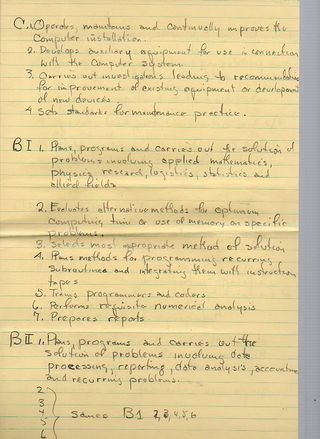 C. 1. Operates, maintains and continually improves the
Computer installation.
2. Develops auxiliary equipment for use in connection
with the Computer System
3. Carries out investigations leading to recommendation
for improvement of existing equipment or development
of new devices.
4. Sets standards for maintenance practice.
B I 1. Plans, programs and carries out the solution of
problems involving applied mathematics,
physics research, logistics, statistics and
allied fields
2. Evaluates alternative methods for optimum
computing time or use of memory on specific
problems.
3. Selects most appropriate method of solution
4. Plans methods for programming recurring
Subroutines and integrating them with instruction
tapes
5. Trains programmers and coders
6. Performs requisite numerical analysis
7. Prepares reports
B II 1. Plans, programs and carries out the
Solution of problems involving data
processing, reporting, data analysis, accounting
and recurring problems.
2
3
4
5
6
Same B1 2, 3, 4, 5, 6